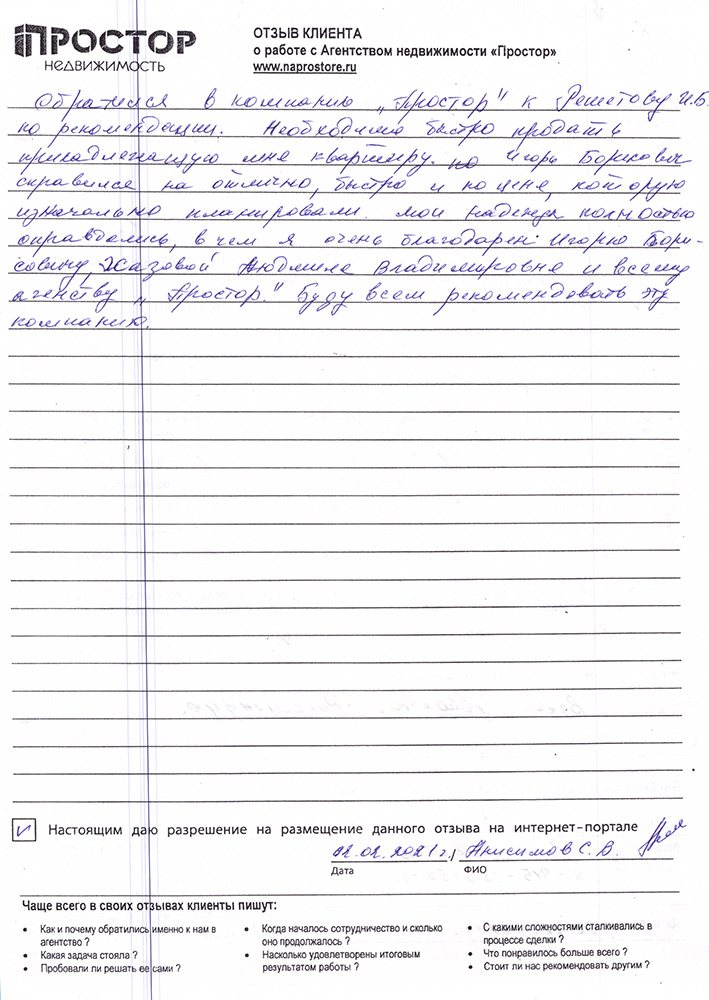 ПРОСТОР
НЕДВИЖИМОСТЬ
ОТЗЫВ КЛИЕНТА
о работе с Агентством недвижимости «Простор»
www.naprostore.ru
Обратился в компанию „Простор" к Решетову И.Б.
по рекомендации. Необходимо быстро продать
принадлежащую мне квартиру. Игорь Борисович
справился на отлично, быстро и по цене, которую
изначально планировали. Мои надежды полностью
оправдались, в чем я очень благодарен Игорю Бори-
совичу, Хазовой Людмиле Владимировне и всему
агенству „Простор." Буду всем рекомендовать эту
компанию.
Настоящим даю разрешение на размещение данного отзыва на интернет-портале
12.02.2021 г., Анисимов С.В.
Дата ФИО
Чаще всего в своих отзывах клиенты пишут:
• Как и почему обратились именно к нам в
агентство ?
• Какая задача стояла ?
• Пробовали ли решать ее сами ?
• Когда началось сотрудничество и сколько
оно продолжалось ?
• Насколько удовлетворены итоговым
результатом работы ?
• С какими сложностями сталкивались в
процессе сделки ?
• Что понравилось больше всего ?
• Стоит ли нас рекомендовать другим ?